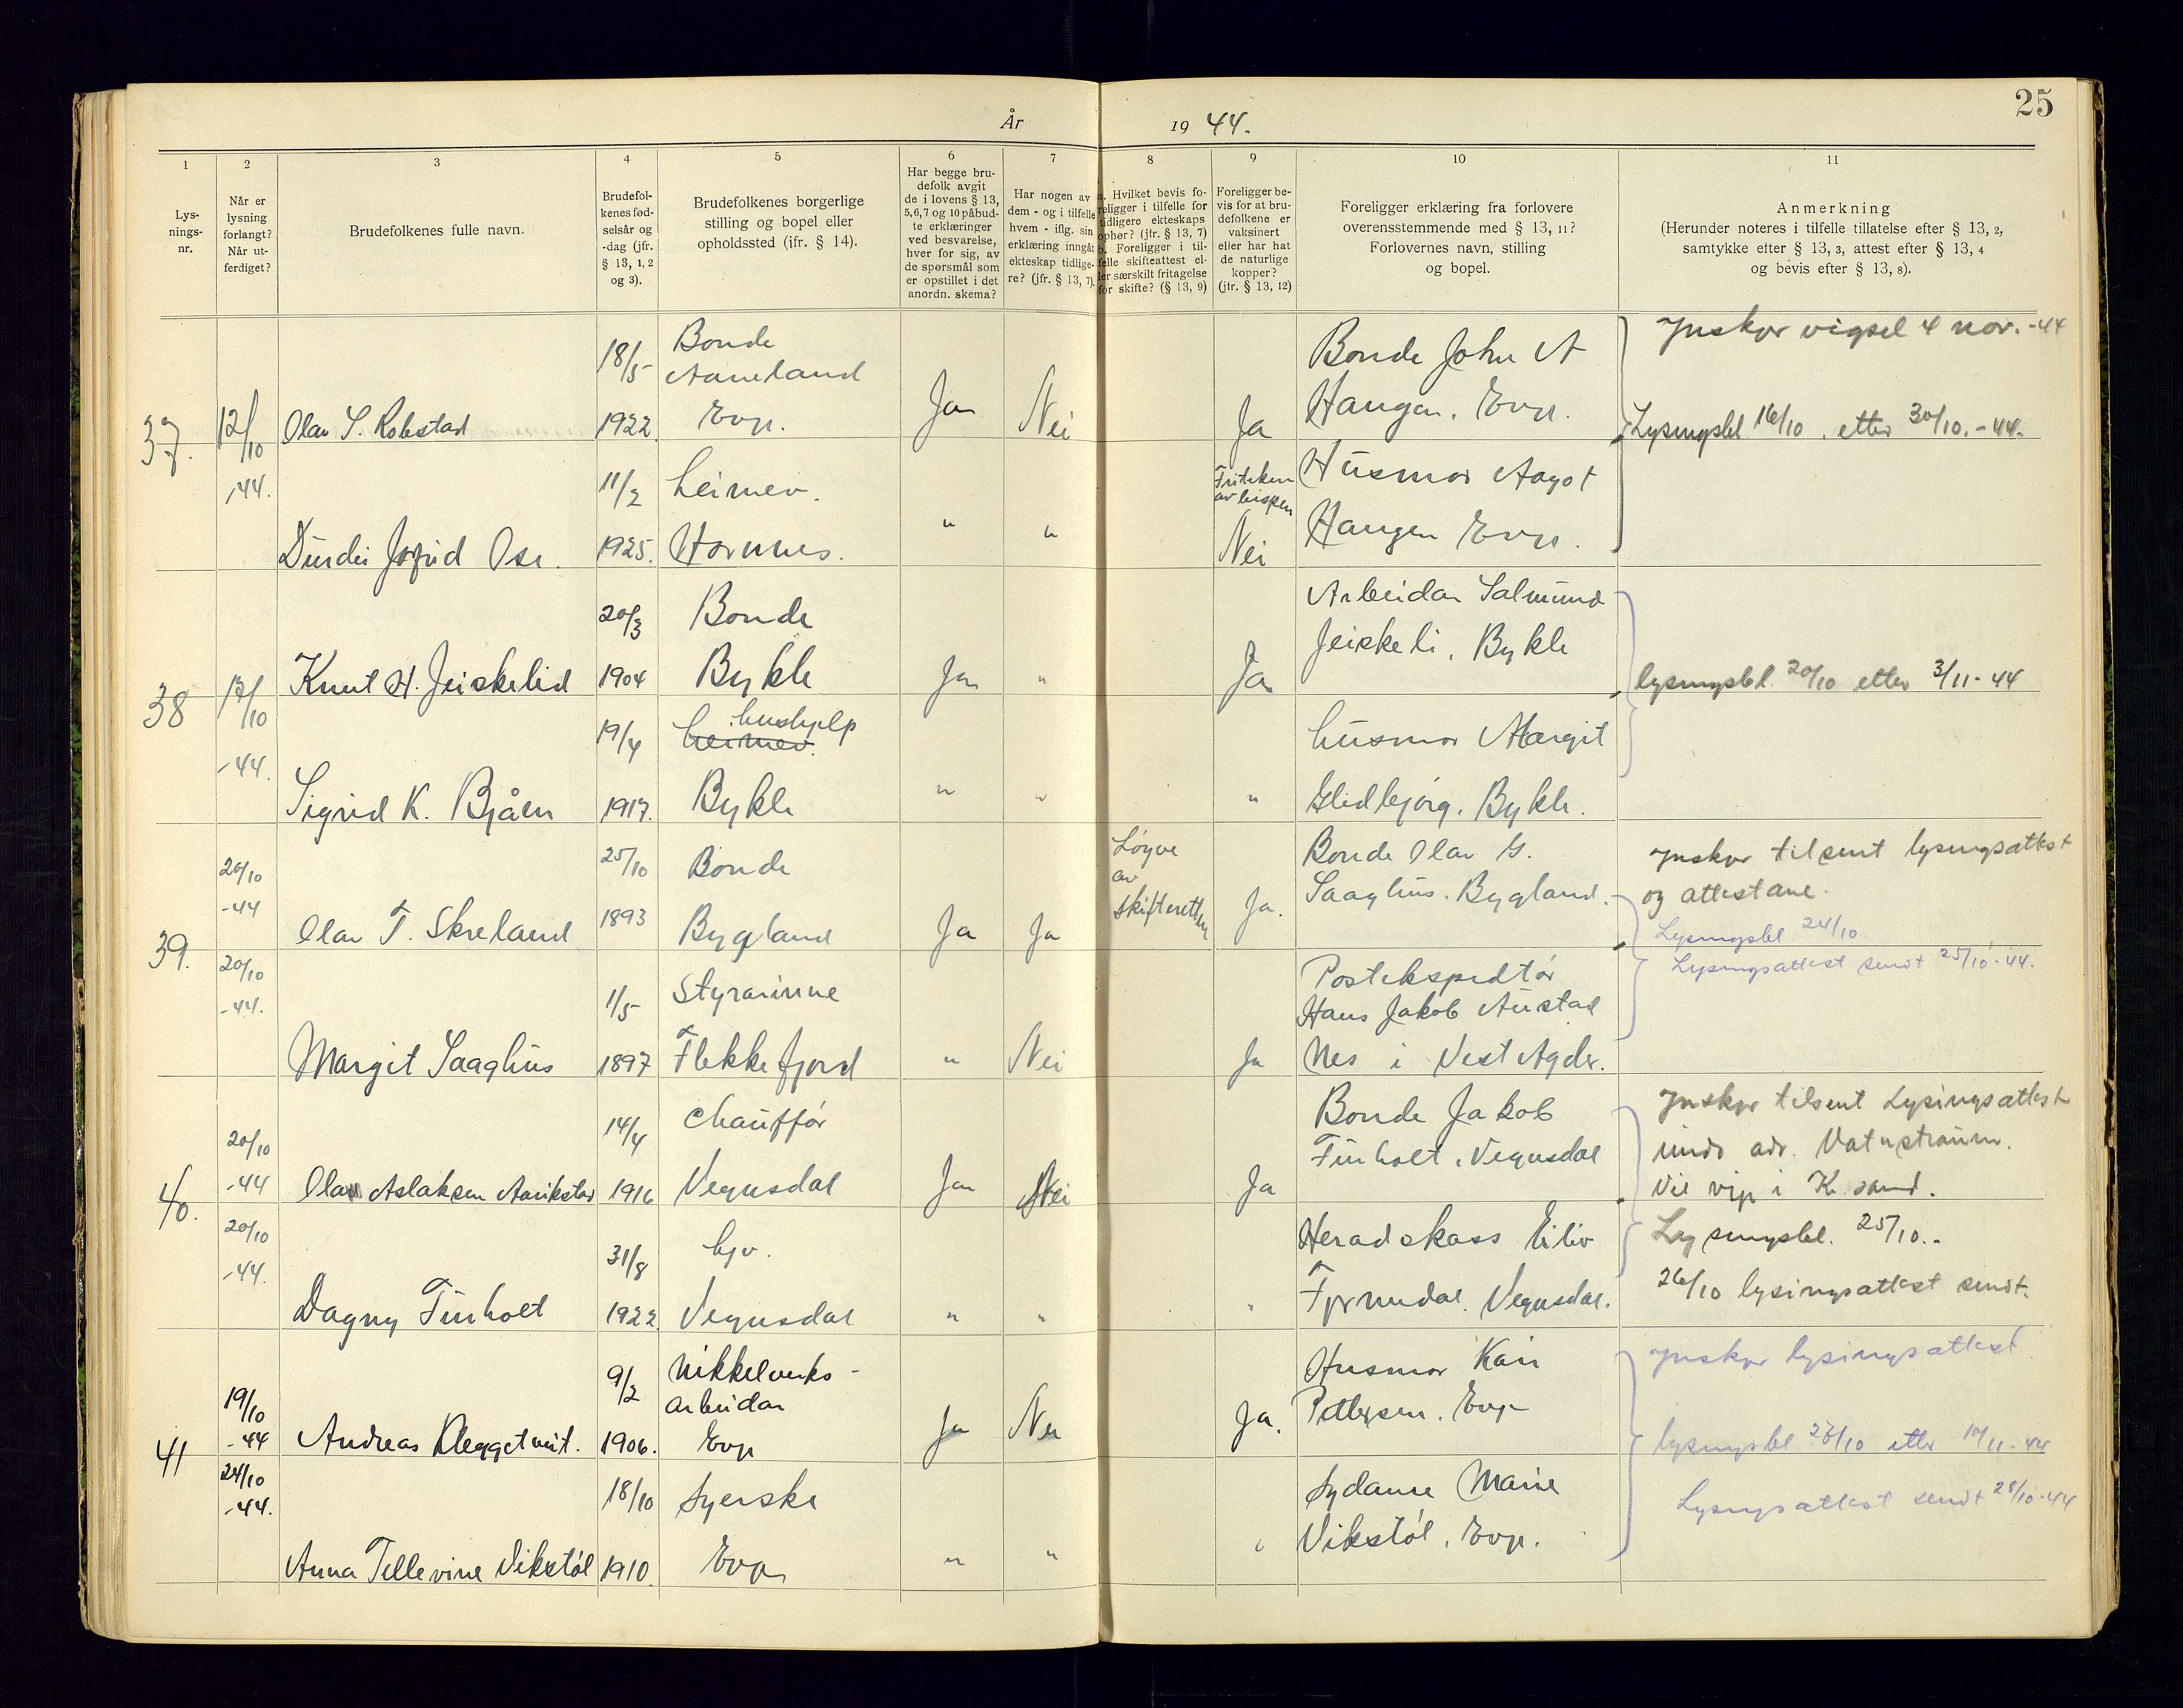 25
År 19 44.
1 2 3 4 5 6 7 8 9 10 11
Lys-
nings-
nr.
Når er
lysning
forlangt?
Når ut-
ferdiget?
Brudefolkenes fulle navn.
Brudefol-
kenes fød-
selsår og
-dag (jfr.
§ 13, 1, 2
og 3).
Brudefolkenes borgerlige
stilling og bopel eller
opholdssted (ifr. § 14).
Har begge bru-
defolk avgit
de i lovens § 13,
5, 6, 7 og 10 påbud-
te erklæringer
ved besvarelse,
hver for sig, av
de spørsmål som
er opstillet i det
anordn. skema?
Har nogen av
dem - og i tilfelle
hvem - iflg. sin
erklæring inngåt
ekteskap tidlige-
re? (jfr. § 13, 7).
a. Hvilket bevis fo-
religger i tilfelle for
tidligere ekteskaps
ophør? (jfr. § 13, 7)
b. Foreligger i til-
felle skifteattest el-
ler særskilt fritagelse
for skifte? (§ 13, 9)
Foreligger be-
vis for at bru-
defolkene er
vaksinert
eller har hat
de naturlige
kopper?
(jfr. § 13, 12)
Foreligger erklæring fra forlovere
overensstemmende med § 13, 11?
Forlovernes navn, stilling
og bopel.
Anmerkning
(Herunder noteres i tilfelle tillatelse efter § 13, 2,
samtykke efter § 13, 3, attest efter § 13, 4
og bevis efter § 13, 8).
37.
12/10
-44.
Olav S. Robstad
18/5
1922.
Bonde
Aaneland
Evje.
Ja
Nei
Ja
Bonde John A
Haugen. Evje.
Ynskjer vigsel 4 nov. -44
Lysingsbl 16/10 . etter 30/10. -44.
Ose.
11/2
1925.
heimev.
Hornnes.
"
"
Friteken
av bispen
Nei
Husmor Aagot
Haugen Evje.
38
17/10
-44.
Knut H. Jeiskelid
20/3
1904
Bonde
Bykle
Ja
"
Ja
Arbeidar Salmund
Jeiskeli. Bykle
lysingsbl. 20/10 etter 3/11-44
Sigrid K. Bjåen
19/4
1917.
hushjelp
heimev.
Bykle
"
"
"
husmor Margit
Glidbjørg. Bykle.
39.
20/10
-44
Olav T. Skreland
25/10
1893
Bonde
Bygland
Ja
Ja
Løyve
av
skifteretten
Ja.
Bonde Olav G.
Saaghus. Bygland.
Ynskjer tilsent lysingsattest
og attestane.
Lysingsbl. 24/10
Lysingsattest sendt 25/10-44.
20/10
-44.
Margit Saaghus
1/5
1897
Styrarinne
Flekkefjord
"
Nei
Ja
Postekspedtør
Hans Jakob Austad
Nes i Vest Agder.
40.
20/10
-44
Olav Aslaksen Aarikstad
14/4
1916
Chauffør
Vegusdal
Ja
Nei
Ja
Bonde Jakob
Furholt. Vegusdal
Ynskjer tilsent Lysingsattest
adr. Vatnstraum.
i K.sand.
20/10
-44.
Dagny Furholt
31/8
1922.
hjv.
Vegusdal
"
"
"
Heradskass Eiliv
Fjermedal. Vegusdal.
Lysingsbl. 25/10.-
26/10 lysingsattest sendt.
41
19/10
-44
Andreas
9/2
1906.
Nikkelverks-
arbeidar
Evje
Ja
Nei
Ja.
Husmor Kari
Pettersen. Evje
Ynskjer lysingsattest
24/10
-44.
Anna Tellevine Vikstøl
18/10
1910.
Syerske
Evje
"
"
"
Sydame Marie
Vikstøl. Evje.
Lysingsattest sendt 28/10-44